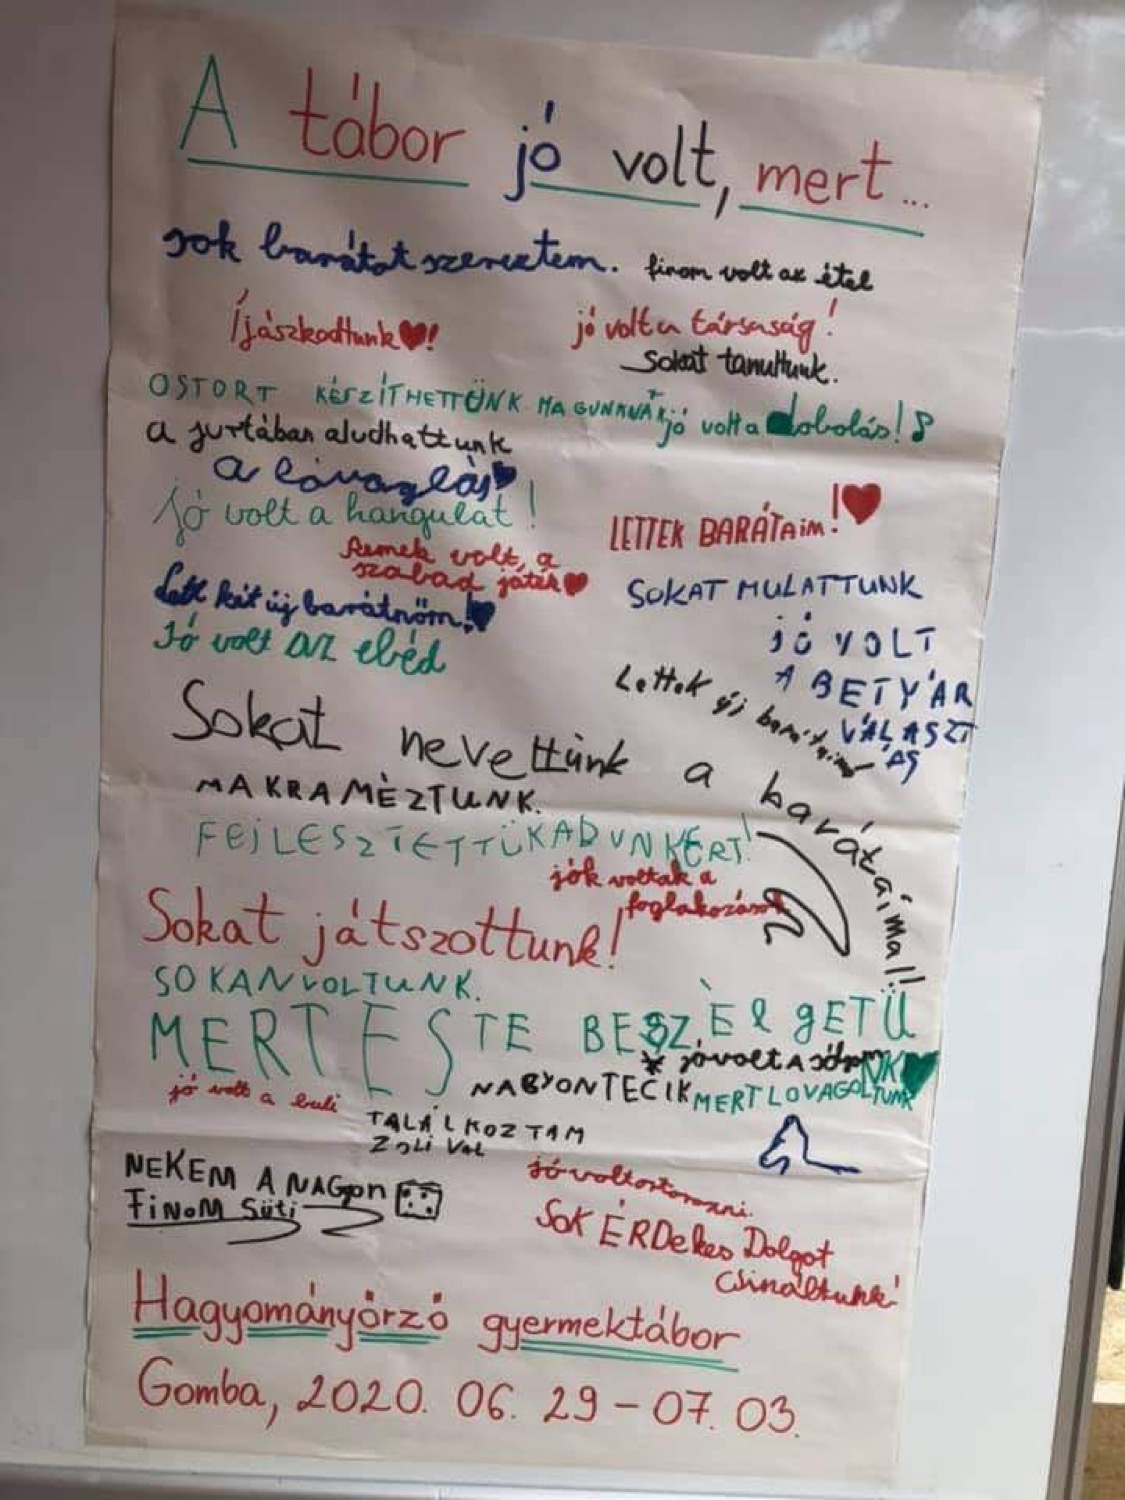 A tábor jó volt, mert...
sok barátot szereztem.
finom volt az étel
Íjászkodtunk!
jó volt a társaság!
Sokat tanultunk.
OSTORT KÉSZÍTHETTÜNK MAGUNKNAK
jó volt a dobolás!
a jurtában aludhattunk
a lovaglás
Jó volt a hangulat!
LETTEK BARÁTAIM!
Remek volt, a
szabad játék
SOKAT MULATTUNK
Lett két új barátnőm!
JÓ VOLT
A BETYÁR
VÁLASZT
ÁS
Jó volt az ebéd
Lettek új barátaim
Sokat nevettünk a barátaimal!!
MAKRAMÉZTUNK.
FEJLESZTETTÜK ADUNKERT!
jók voltak a
foglakozások
Sokat játszottunk!
SOKAN VOLTUNK.
MERT ESTE BESZÉLGETÜ
NK
jó volt a
NAGYON TECIK
MERT LOVAGOLTUNK
jó volt a buli
TALÁLKOZTAM
ZOLIVAL
NEKEM A NAGYON
FINOM Süti
jó volt ostorozni.
Sok ÉRDekes Dolgot
csináltunk!
Hagyományőrző gyermektábor
Gomba, 2020. 06. 29 - 07. 03.